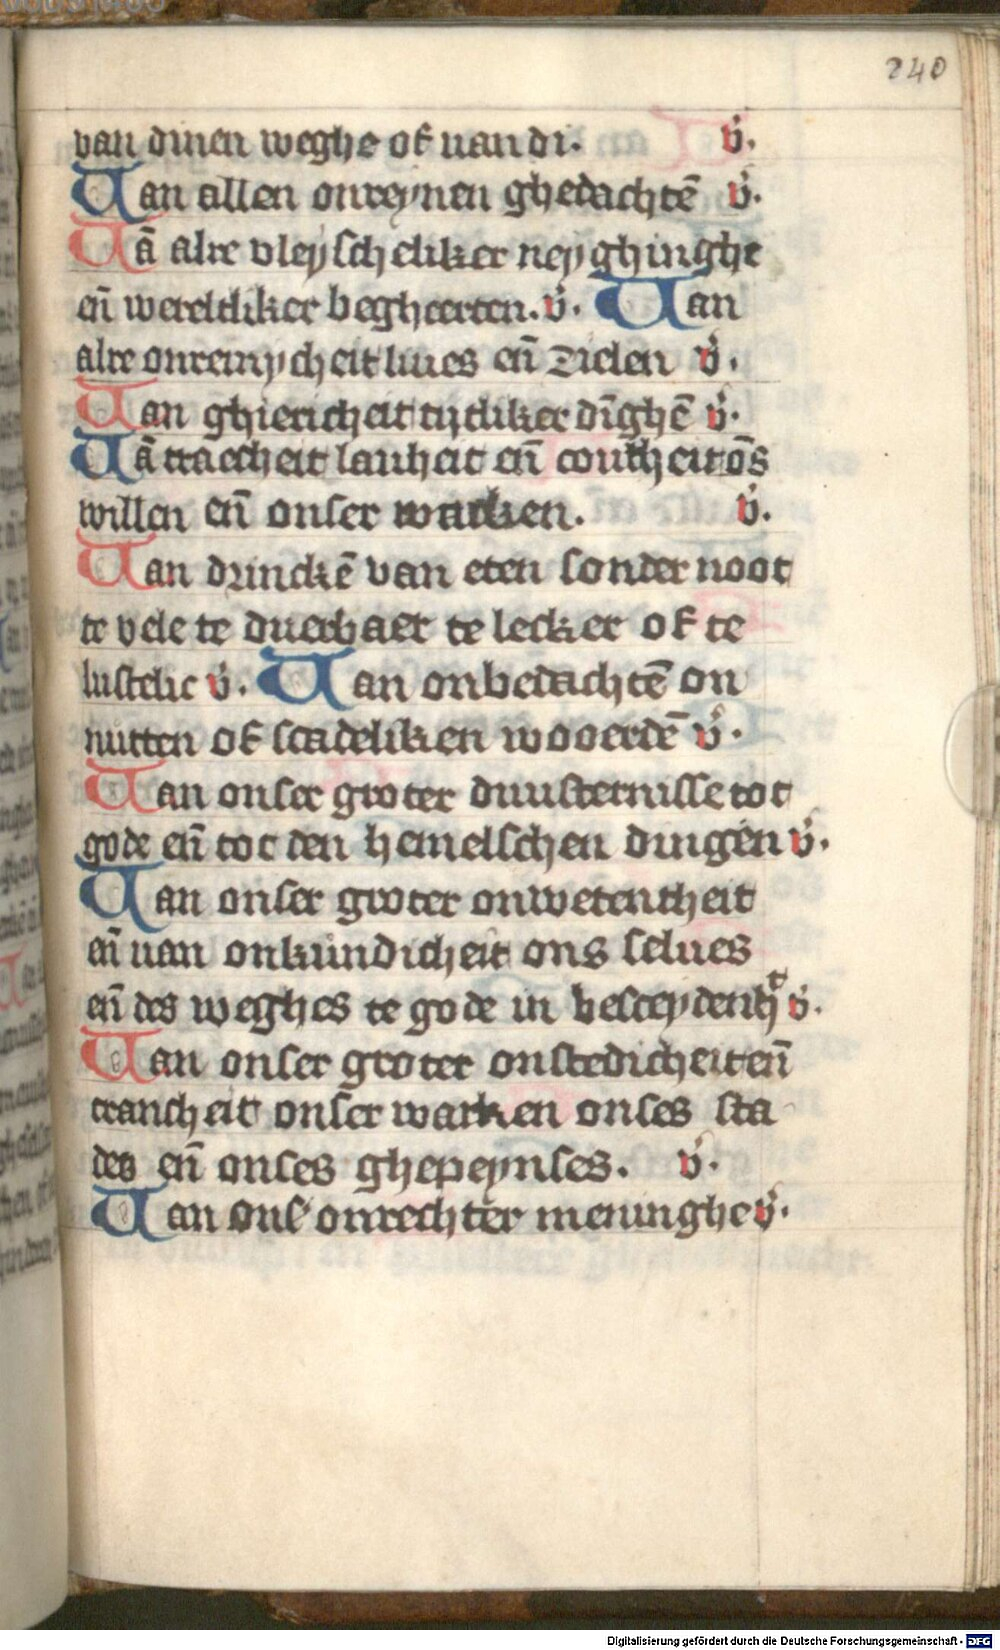 240
van dinen weghe of uan di. v̇.
Uan allen onreynen ghedachtē v̇.
Uā alre vleyscheliker neyghinghe
en̄ wereltliker begheerten. v̇. Uan
alre onreinycheit liues en̄ zielen v̇.
Uan ghiericheit tijtliker dīghē v̇.
Uā traecheit lauheit en̄ coutheit ōs
willen en̄ onser warken. v̇.
Uan drinckē van eten sonder noot
te vele te duerbaer te lecker of te
lustelic v̇. Uan onbedachtē on
nutten of scadeliken wooerdē v̇.
Uan onser groter duusternisse tot
gode en̄ tot den hemelschen dingen v̇.
Uan onser groter onwetentheit
en̄ uan onkundicheit ons selues
en̄ des weghes te gode in v̇.
Uan onser groter onstedicheit en̄
crancheit onser warken onses sta
des en̄ onses ghepeynses. v̇.
Uan ons' onrechter meninghe v̇.
Digitalisierung gefördert durch die Deutsche Forschungsgemeinschaft - DFG